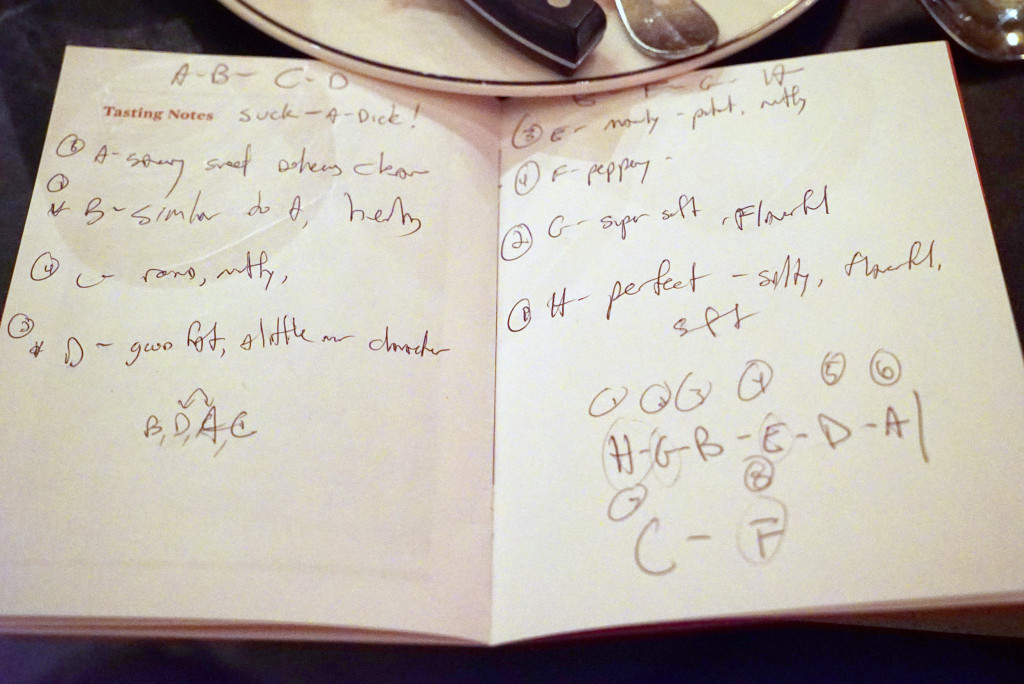 A-B- C-D
Tasting Notes suck-A-Dick!
③ A- sweet clean
① * B- similar to A, herby
④ C- nutty,
② * D- good fat, a little more character
B, D, A, C
G - H
③ E- nutty
④ F- peppery -
② G- super soft, Flavorful
① H- perfect - salty, flavorful,
soft
① ② ③ ④ ⑤ ⑥
H-G-B-E-D-A|
⑦ ⑧
C - F